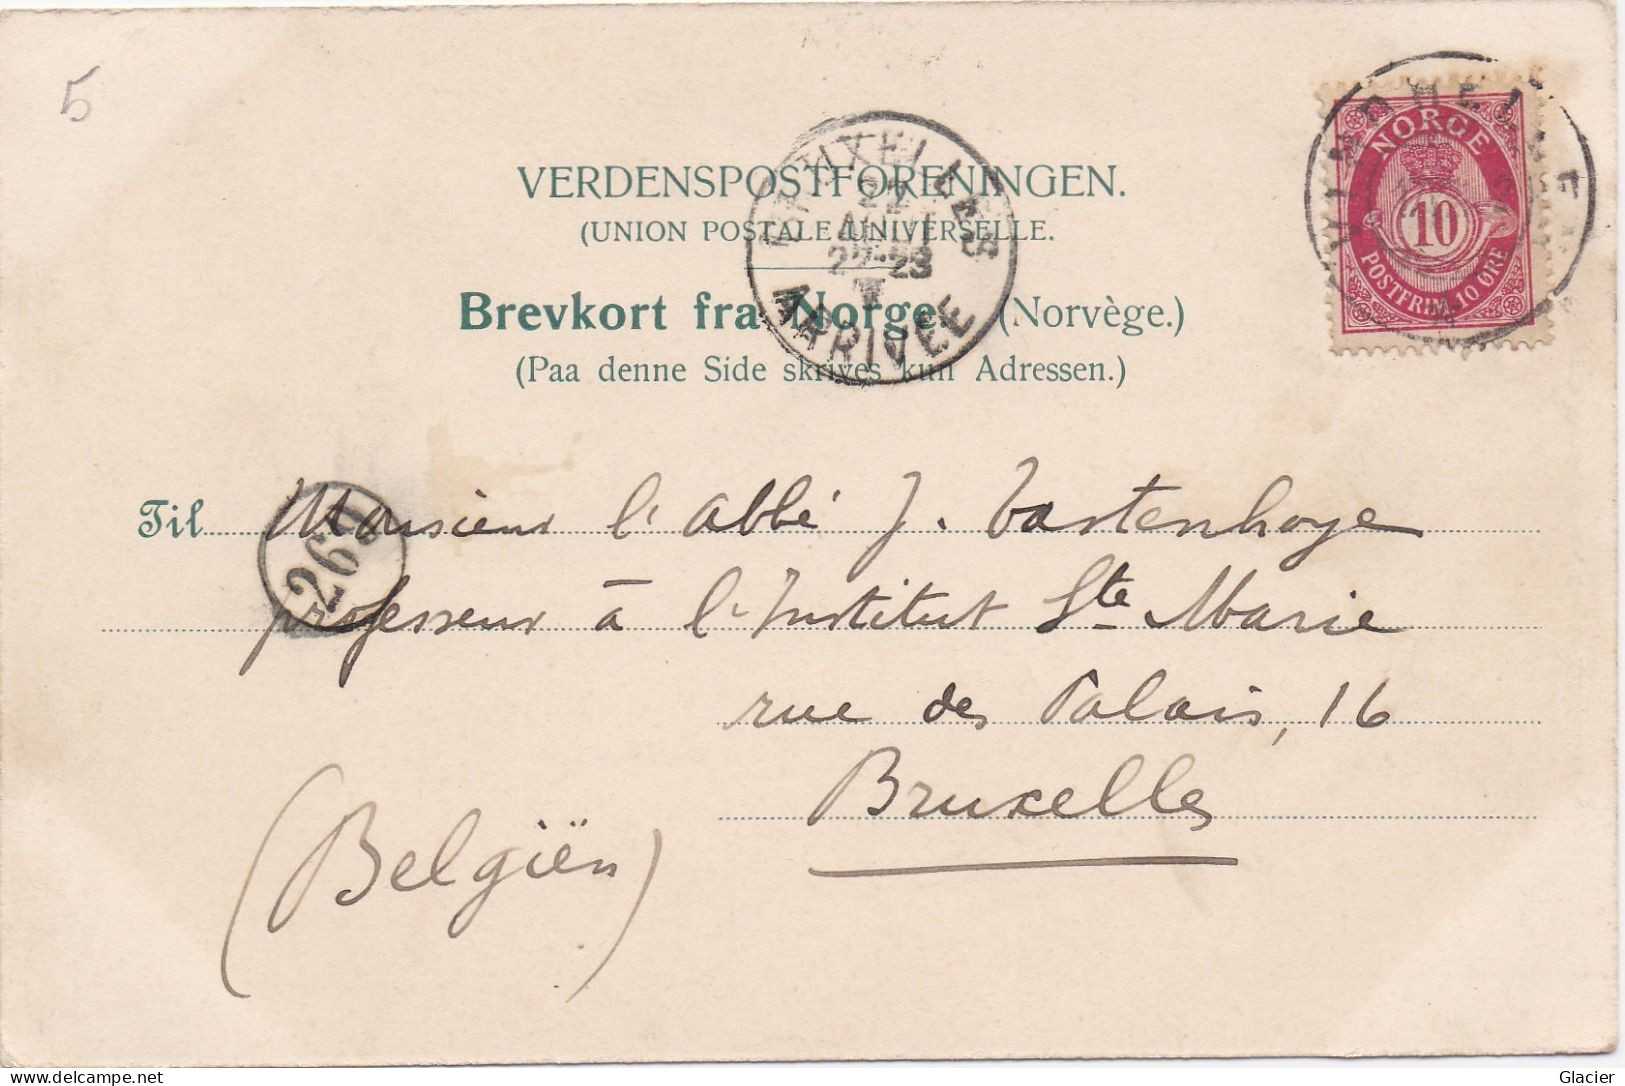 5
VERDENSPOSTFORENINGEN.
(UNION POSTALE UNIVERSELLE.
Brevkort fra Norge. (Norvège.)
(Paa denne Side skrives kun Adressen.)
BRUXELLES
22
22-23
ARRIVÉE
NORGE
10
POSTFRIM. 10 ØRE
Til Monsieur l'abbé J. Vastenhoye
260
professeur à l'Institut Ste Marie
rue des Palais, 16
Bruxelles
(Belgiën)
Glacier